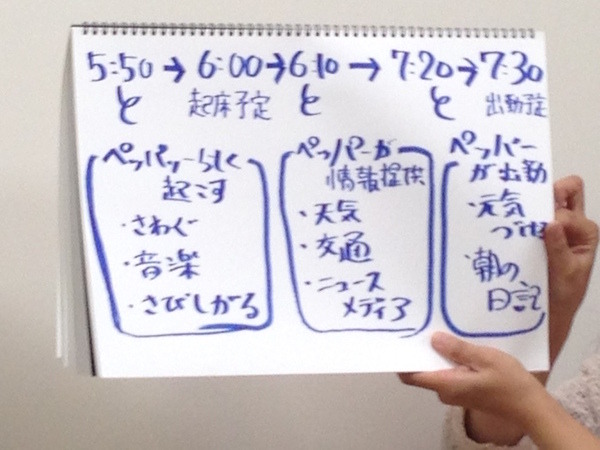 5:50→6:00→6:10→7:20→7:30
起床予定
出勤予定
ペッパーらしく
起こす
・さわぐ
・音楽
・さびしがる
ペッパーが
情報提供
・天気
・交通
・ニュース
メディア
ペッパー
が出勤
・元気
づけ
・朝の
日記